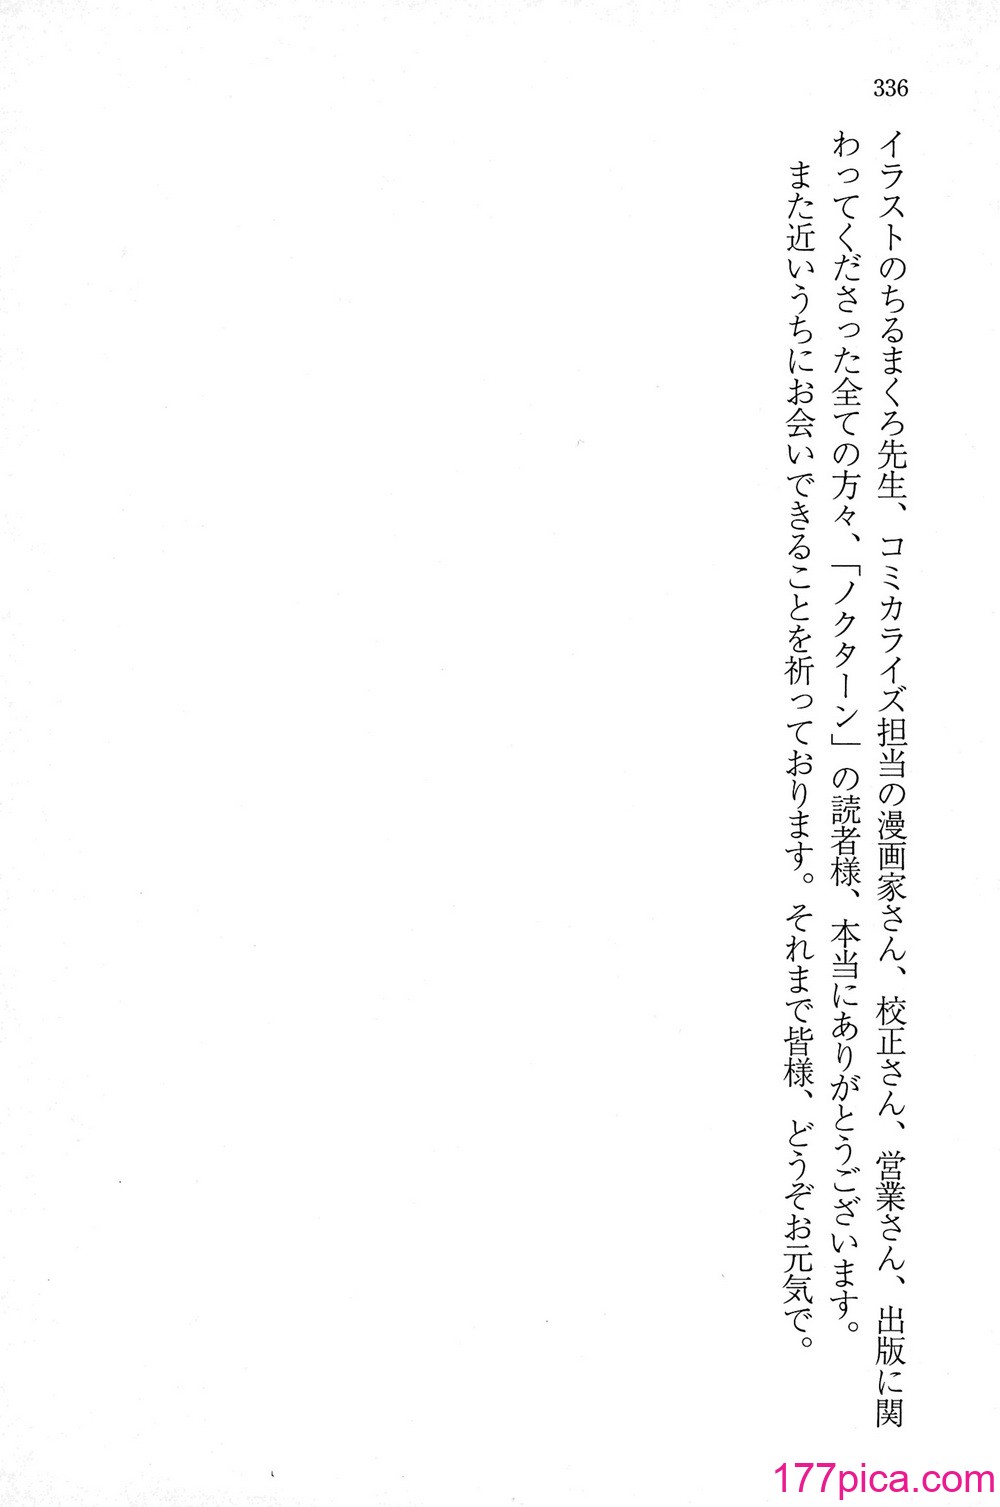 336
イラストのちるまくろ先生、コミカライズ担当の漫画家さん、校正さん、営業さん、出版に関
わってくださった全ての方々、「ノクターン」の読者様、本当にありがとうございます。
また近いうちにお会いできることを祈っております。それまで皆様、どうぞお元気で。
177pica.com